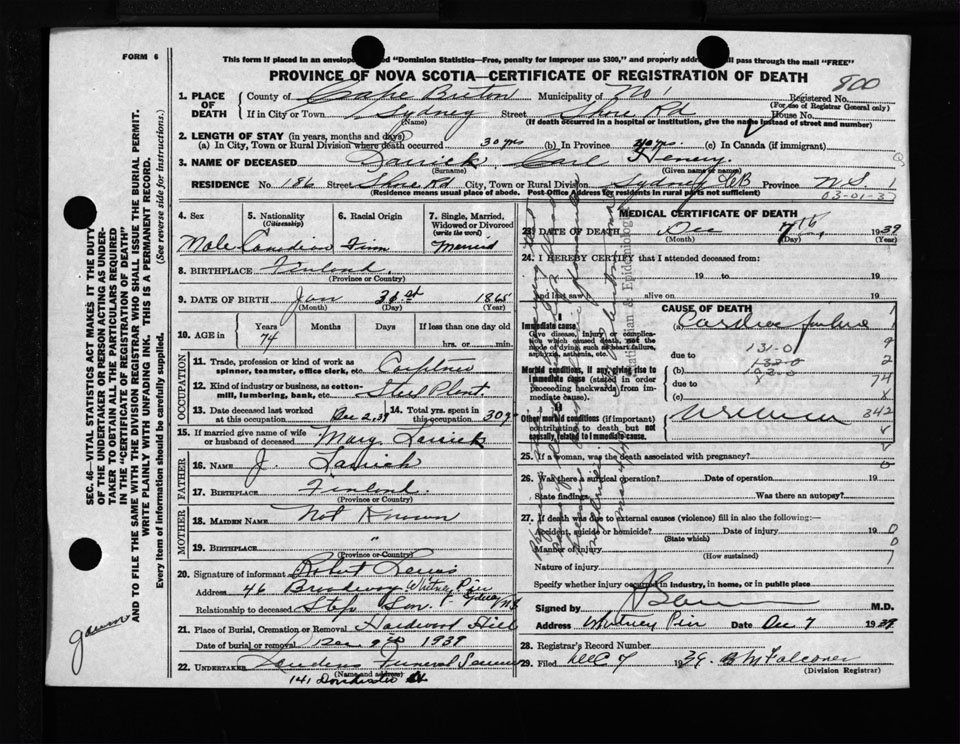 FORM 6
This form if placed in an envelope "Dominion Statistics—Free, penalty for improper use $300," and properly addressed will pass through the mail "FREE"
PROVINCE OF NOVA SCOTIA—CERTIFICATE OF REGISTRATION OF DEATH
800
1. PLACE OF DEATH County of Cape Breton Municipality of No 1 Registered No.
(For use of Registrar General only)
If in City or Town Sydney Street Shore Rd House No.
(Name) (If death occurred in a hospital or institution, give the name instead of street and number)
2. LENGTH OF STAY (in years, months and days)
(a) In City, Town or Rural Division where death occurred 30 yrs (b) In Province 40 yrs. (c) In Canada (if immigrant)
3. NAME OF DECEASED Carl Henery
(Surname) (Given name or names)
RESIDENCE No. 186 Street Shore Rd City, Town or Rural Division Sydney CB Province N.S. 1
(Residence means usual place of abode. Post-Office Address for residents in rural parts not sufficient)
03-01-3
4. Sex
Male
5. Nationality
(Citizenship)
Canadian
6. Racial Origin
Finn
7. Single, Married, Widowed or Divorced
(write the word)
Married
8. BIRTHPLACE Finland
(Province or Country)
9. DATE OF BIRTH Jan 31st 1865
(Month) (Day) (Year)
10. AGE in Years Months Days If less than one day old
74 hrs. or min.
OCCUPATION
11. Trade, profession or kind of work as spinner, teamster, office clerk, etc. Carpenter
12. Kind of industry or business, as cotton-mill, lumbering, bank, etc. Steel Plant
13. Date deceased last worked at this occupation Dec 2, 39 14. Total yrs. spent in this occupation 30 yr
15. If married give name of wife or husband of deceased Mary
FATHER
16. NAME J.
17. BIRTHPLACE Finland.
(Province or Country)
MOTHER
18. MAIDEN NAME Not Known
19. BIRTHPLACE "
(Province or Country)
20. Signature of informant Robert Lewis
Address 46 Whitney Pier Sydney N.S
Relationship to deceased Step Son.
21. Place of Burial, Cremation or Removal Hardwood Hill
Date of burial or removal Dec. 9th 1939
22. UNDERTAKER Funeral Service
(Name and address)
141 Dorchester St
MEDICAL CERTIFICATE OF DEATH
23. DATE OF DEATH Dec 7th 1939
(Month) (Day) (Year)
24. I HEREBY CERTIFY that I attended deceased from:
19 to 19
and last saw alive on 19
CAUSE OF DEATH
Immediate cause
Give disease, injury or complication which caused death, not the mode of dying, such as heart failure, asphyxia, asthenia, etc.
(a) Cardiac failure
due to
131-0
Morbid conditions, if any, giving rise to immediate cause (stated in order proceeding backwards from immediate cause).
(b)
due to
(c)
Other morbid conditions (if important) contributing to death but not causally related to immediate cause.
25. If a woman, was the death associated with pregnancy?
26. Was there a surgical operation? Date of operation 19
State findings Was there an autopsy?
27. If death was due to external causes (violence) fill in also the following:—
Accident, suicide or homicide? Date of injury 19
(State which)
Manner of injury
(How sustained)
Nature of injury
Specify whether injury occurred in industry, in home, or in public place
Signed by M.D.
Address Whitney Pier Date Dec 7 1939
28. Registrar's Record Number
29. Filed Dec 7 1939 Falconer
(Division Registrar)
SEC. 46—VITAL STATISTICS ACT MAKES IT THE DUTY
OF THE UNDERTAKER OR PERSON ACTING AS UNDER-
TAKER TO OBTAIN ALL THE PARTICULARS REQUIRED
IN THE "CERTIFICATE OF REGISTRATION OF DEATH"
AND TO FILE THE SAME WITH THE DIVISION REGISTRAR WHO SHALL ISSUE THE BURIAL PERMIT.
WRITE PLAINLY WITH UNFADING INK. THIS IS A PERMANENT RECORD.
Every item of information should be carefully supplied. (See reverse side for instructions.)